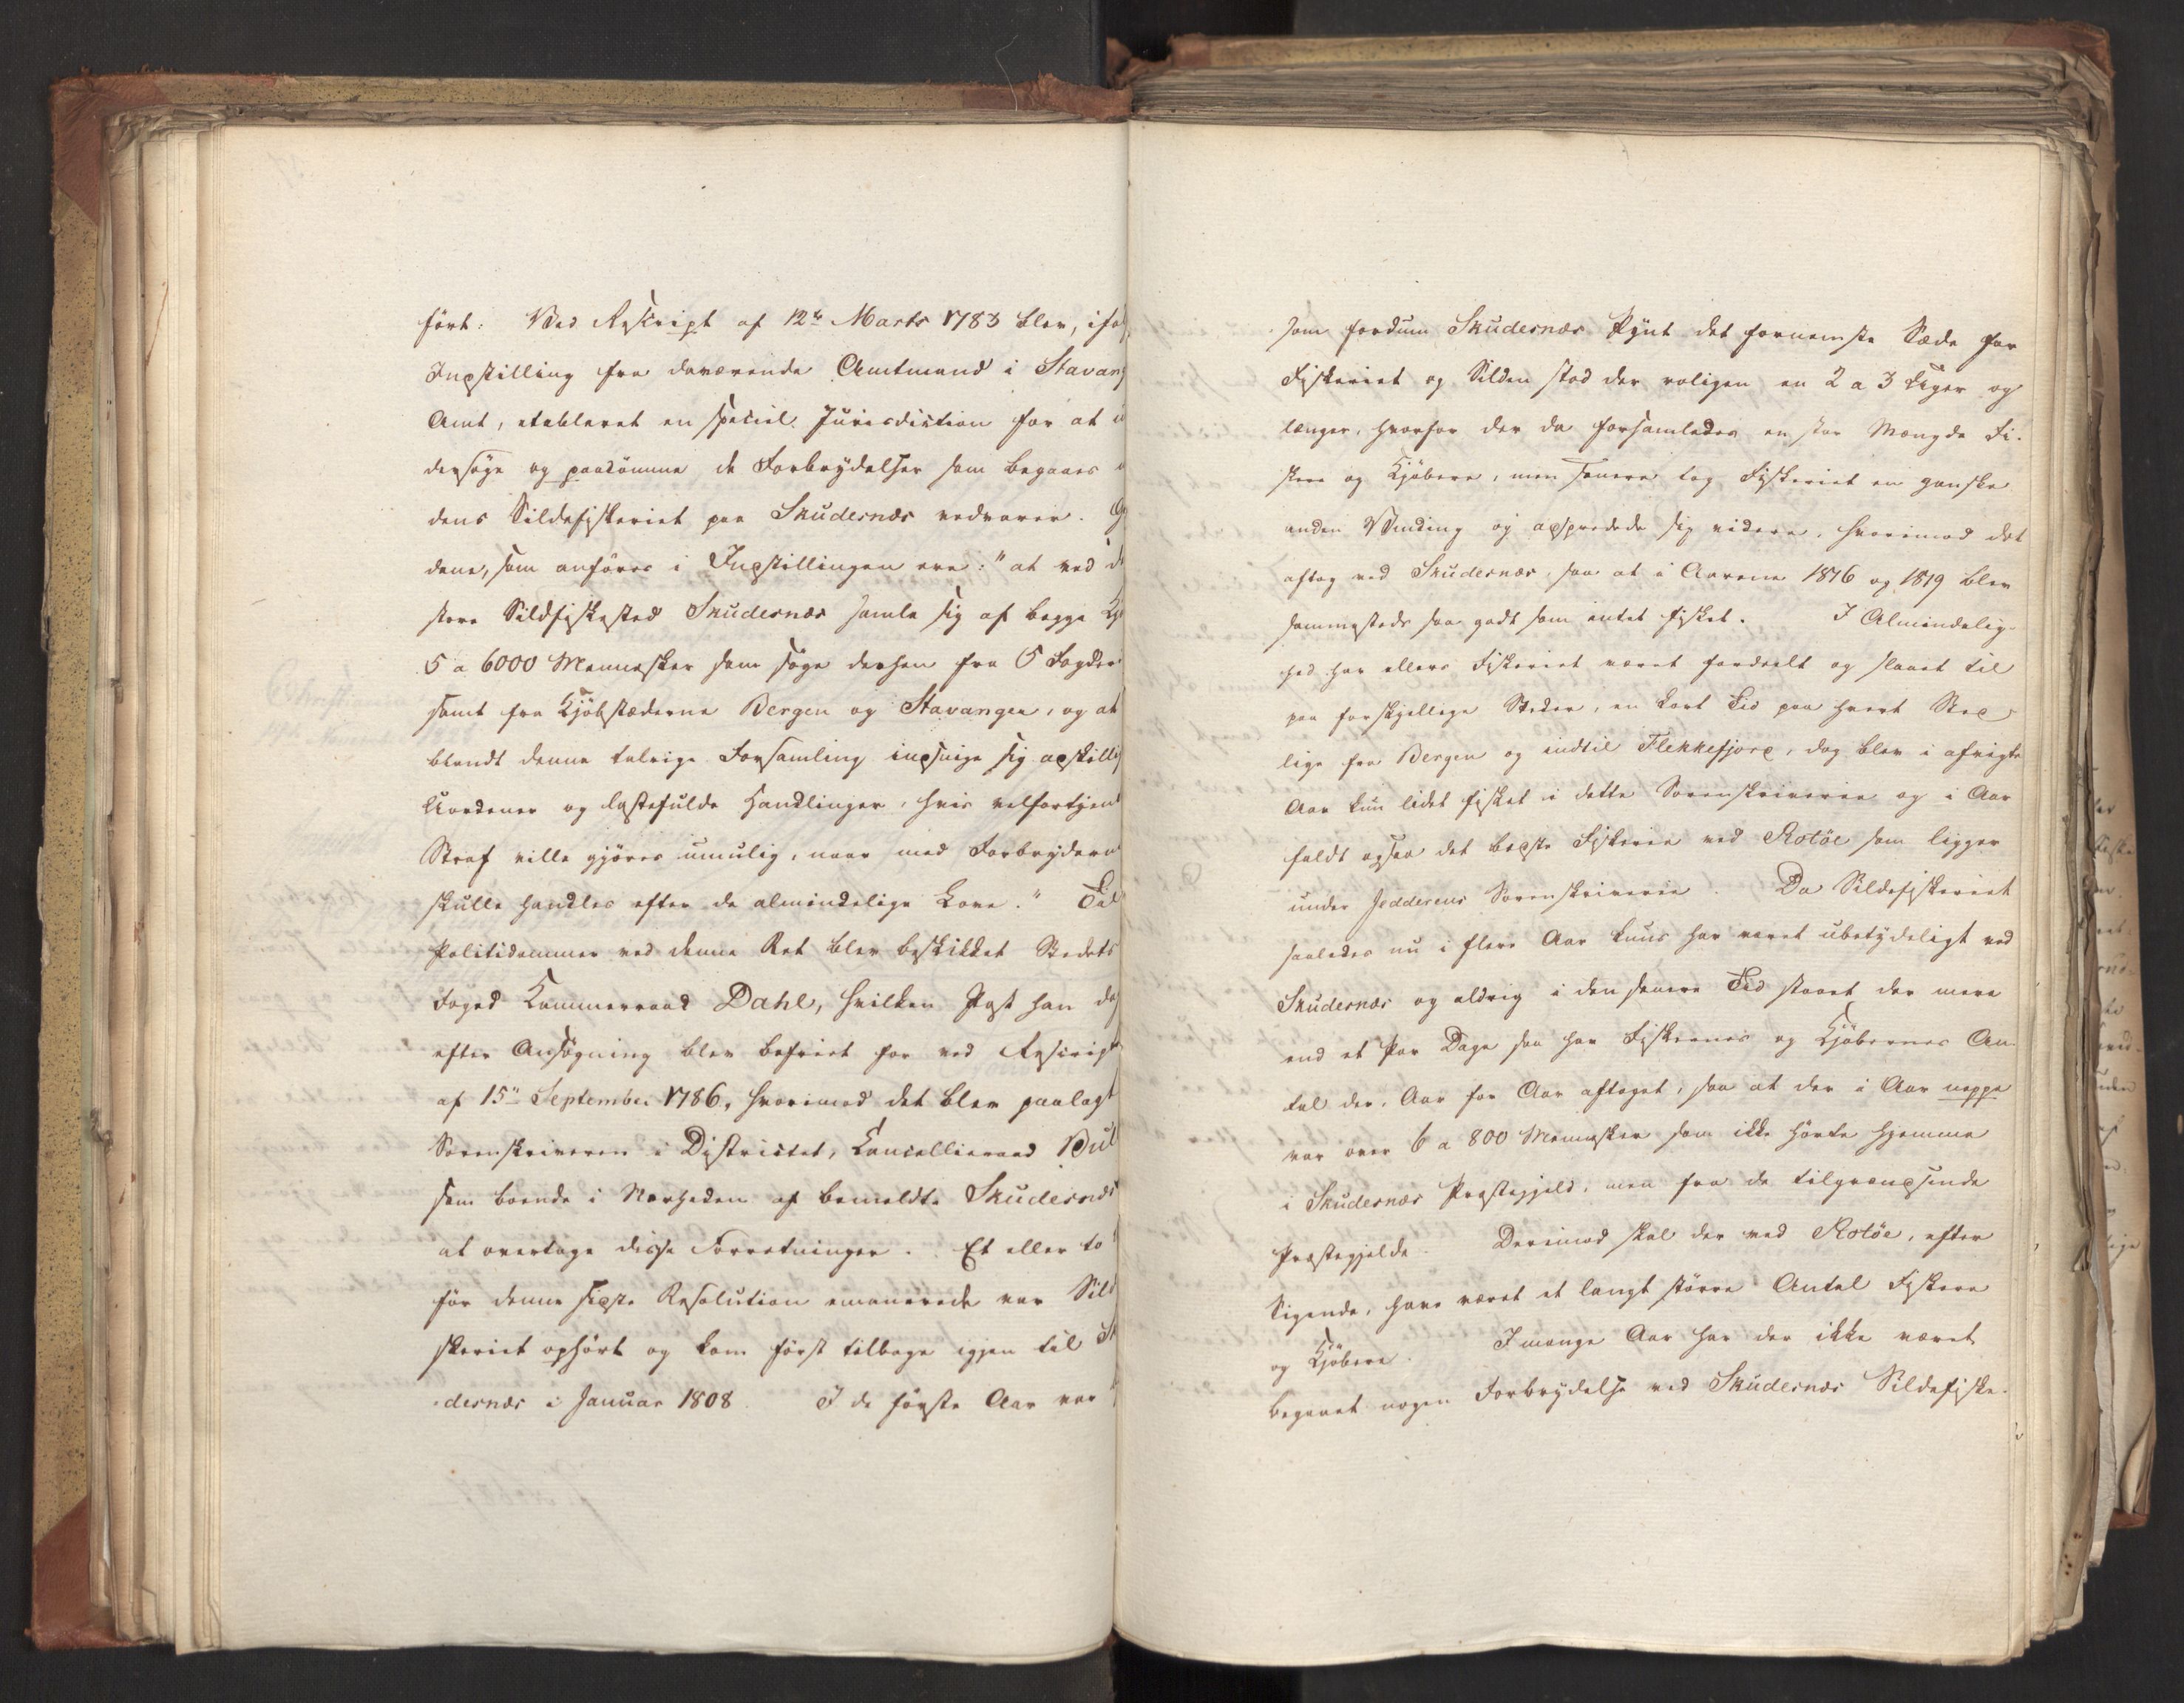 ført: Ved Rescript af 12te Marts 1783 blev, ifø
Indstilling fra daværende Amtmand i Stavang
Amt, etableret en speciel Jurisdiction for at u
dersøge og paadømme de Forbrydelser som begaaes i
dens Sildefiskeriet paa Skudesnæs vedvarer. G
dene, som anføres i Indstillingen ere: "at ved d
store Sildfiskested Skudesnæs samle sig af begge Kjø
5 a 6000 Mennesker som søge derhen fra 5 Fogder
samt fra Kjøbstæderne Bergen og Stavanger, og at
blandt denne talrige Forsamling indsnige sig adskilli
Uordener og lastefulde Handlinger, hvis velfortjent
Straf ville gjøres umulig, naar med Forbryderne
skulle handles efter de almindelige Love." Til
Politidommer ved denne Ret blev beskikket Stedets
Foged Kammerraad Dahl, hvilken Post han dog
efter Ansøgning blev befriet for ved Rescript
af 15de September 1786, hvorimod det blev paalagt
Sorenskriveren i Districtet, Cancellieraad Bul
som boende i Nærheden af bemeldte Skudesnæs
at overtage disse Forretninger. Et eller to
før denne sidste Resolution emanerede var Sild
skeriet ophørt og kom først tilbage igjen til Sk
desnæs i Januar 1808. I de første Aar var
som fordum Skudesnæs Pynt det fornemste Sæde for
Fiskeriet og Silden stod der roligen en 2 a 3 Uger og
længer, hvorfor der da forsamledes en stor Mængde Fi-
skere og Kjøbere, men senere tog Fiskeriet en ganske
anden Vending og adspredede sig videre, hvorimod det
aftog ved Skudesnæs, saa at i Aarene 1816 og 1819 blev
sammesteds saa godt som intet fisket. I Almindelig-
hed har ellers Fiskeriet været fordeelt og slaaet til
paa forskjellige Steder, en kort Tid paa hvert Sted
lige fra Bergen og indtil Flekkefjord, dog blev i afvigte
Aar kun lidet fisket i dette Sorenskriverie og i Aar
faldt ogsaa det bedste Fiskerie ved Rotöe som ligger
under Jedderens Sorenskriverie. Da Sildefiskeriet
saaledes nu i flere Aar kuns har været ubetydeligt ved
Skudesnæs og aldrig i den senere Tid staaet der mere
end et Par Dage saa har Fiskernes og Kjøbernes An-
tal der, Aar for Aar aftaget, saa at der i Aar neppe
var over 6 a 800 Mennesker som ikke hørte hjemme
i Skudesnæs Præstegjeld, men fra de tilgrændsende
Præstegjelde. Derimod skal der ved Rotöe, efter
Sigende, have været et langt større Antal Fiskere
og Kjøbere. I mange Aar har der ikke været
begaaet nogen Forbrydelse ved Skudesnæs Sildefiske-